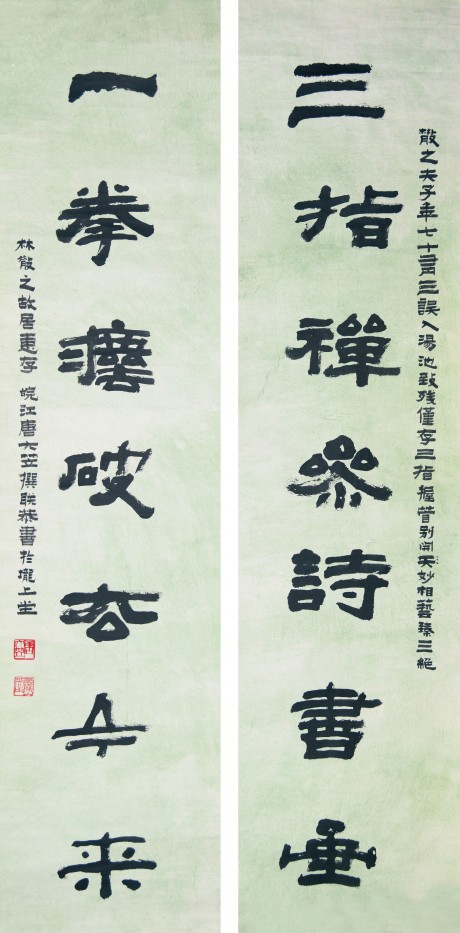 三指禪參詩書
散之夫子年七十有三誤入湯池致残僅存三指握管别開天妙相藝臻三絶
一拳破古今来
林散之故居惠存 皖江唐大笠撰联恭書於壠上